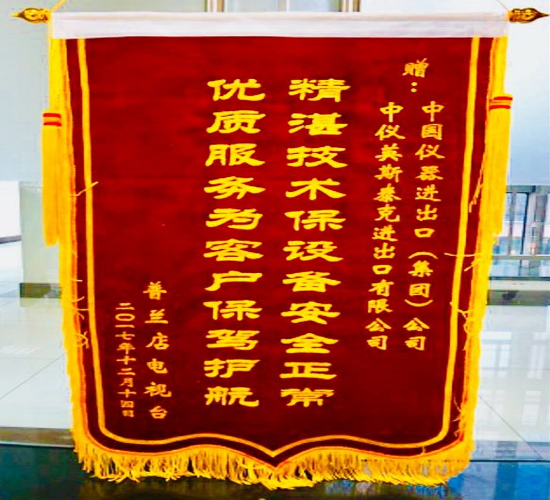 赠：
中国仪器进出口（集团）公司
中仪英斯泰克进出口有限公司
精湛技术保设备安全正常
优质服务为客户保驾护航
普兰店电视台
二〇一七年十二月十四日